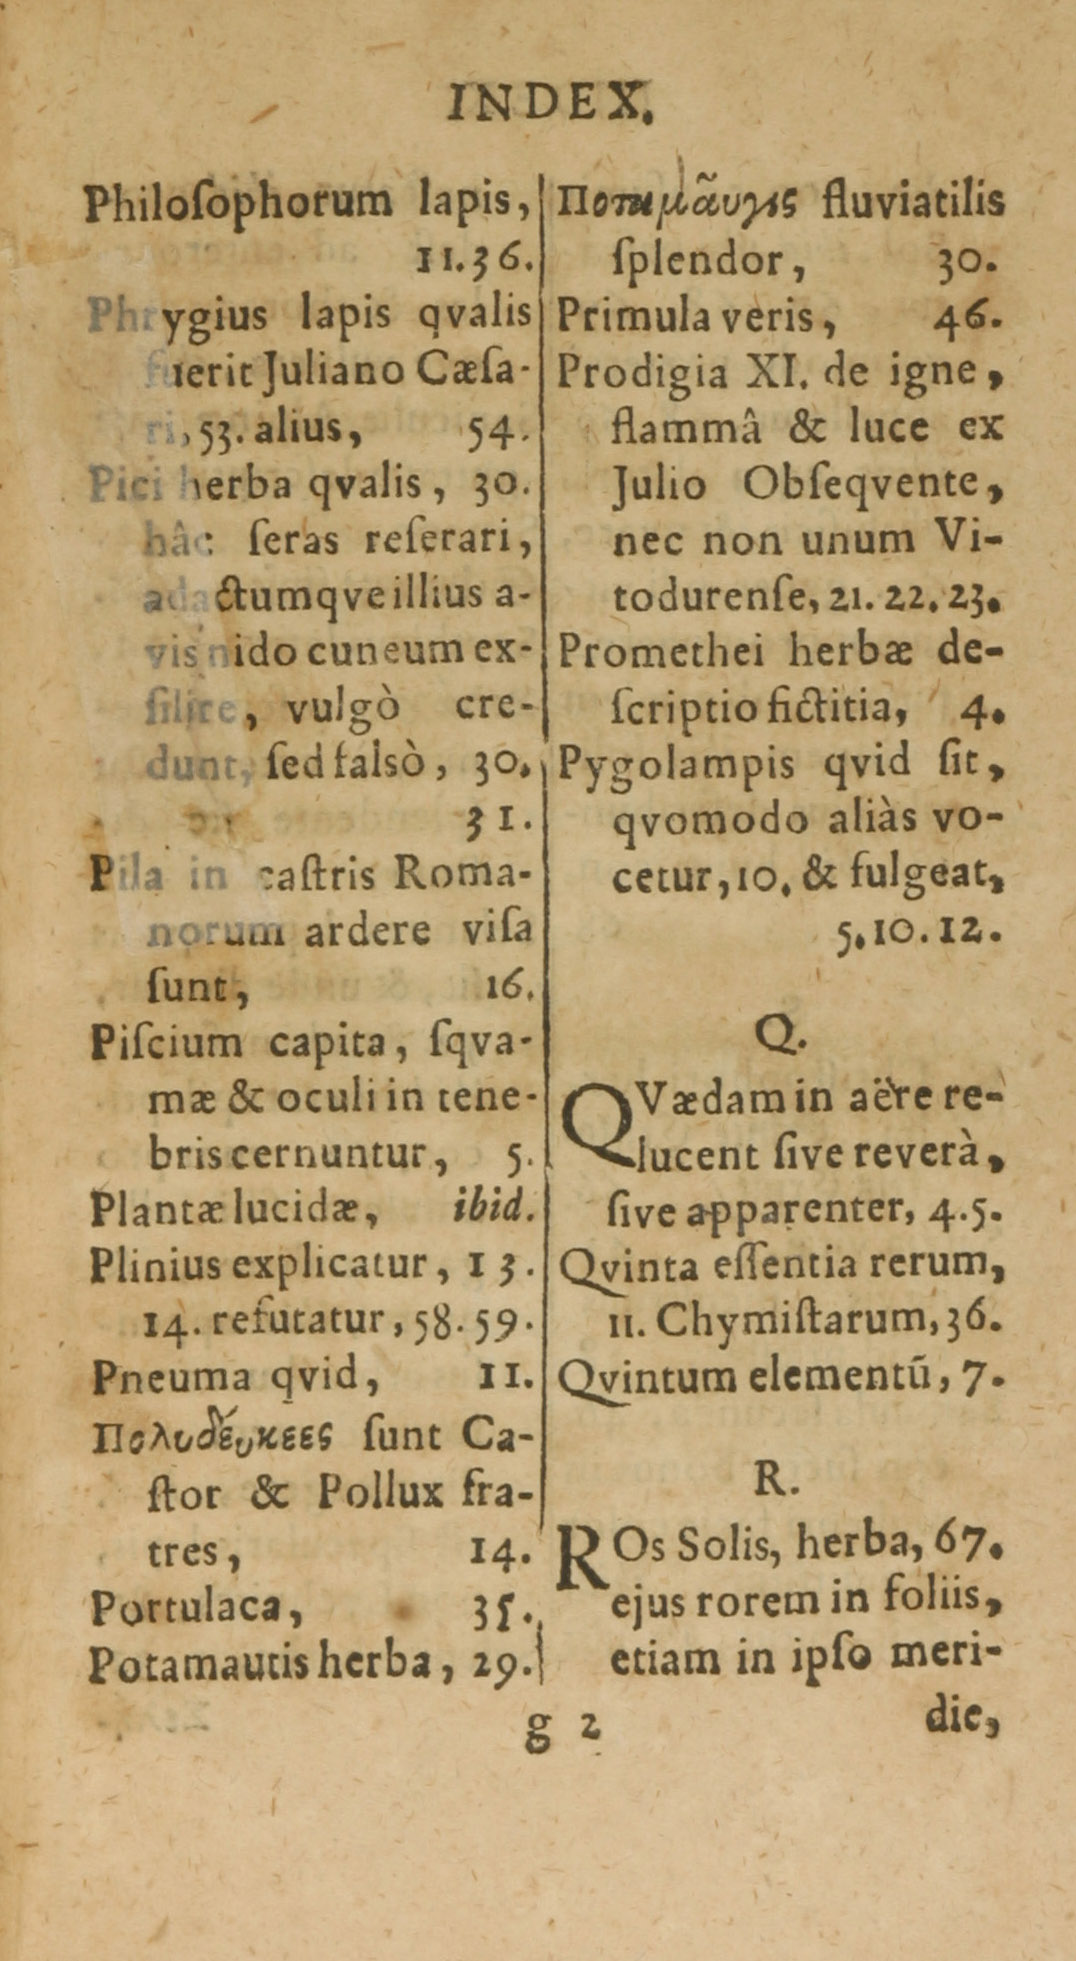 INDEX.
Philoſophorum lapis,
11.36.
Phrygius lapis qvalis
fuerit Juliano Cæſa-
ri, 53. alius, 54.
Pici herba qvalis, 30.
hâc ſeras reſerari,
adactumqve illius a-
vis nido cuneum ex-
ſilire, vulgò cre-
dunt, ſed falsò, 30.
31.
Pila in caſtris Roma-
norum ardere viſa
ſunt, 16.
Piſcium capita, ſqva-
mæ & oculi in tene-
bris cernuntur, 5.
Plantæ lucidæ, ibid.
Plinius explicatur, 13.
14. refutatur, 58.59.
Pneuma qvid, 11.
Πολυδέυκεες ſunt Ca-
ſtor & Pollux fra-
tres, 14.
Portulaca, 35.
Potamautis herba, 29.
fluviatilis
ſplendor, 30.
Primula veris, 46.
Prodigia XI. de igne,
flammâ & luce ex
Julio Obſeqvente,
nec non unum Vi-
todurenſe, 21. 22. 23.
Promethei herbæ de-
ſcriptio fictitia, 4.
Pygolampis qvid ſit,
qvomodo aliàs vo-
cetur, 10. & fulgeat,
5.10.12.
Q.
QVædam in aëre re-
lucent ſive reverà,
ſive apparenter, 4.5.
Qvinta eſſentia rerum,
11. Chymiſtarum, 36.
Qvintum elementũ, 7.
R.
ROs Solis, herba, 67.
ejus rorem in foliis,
etiam in ipſo meri-
g 2 die,